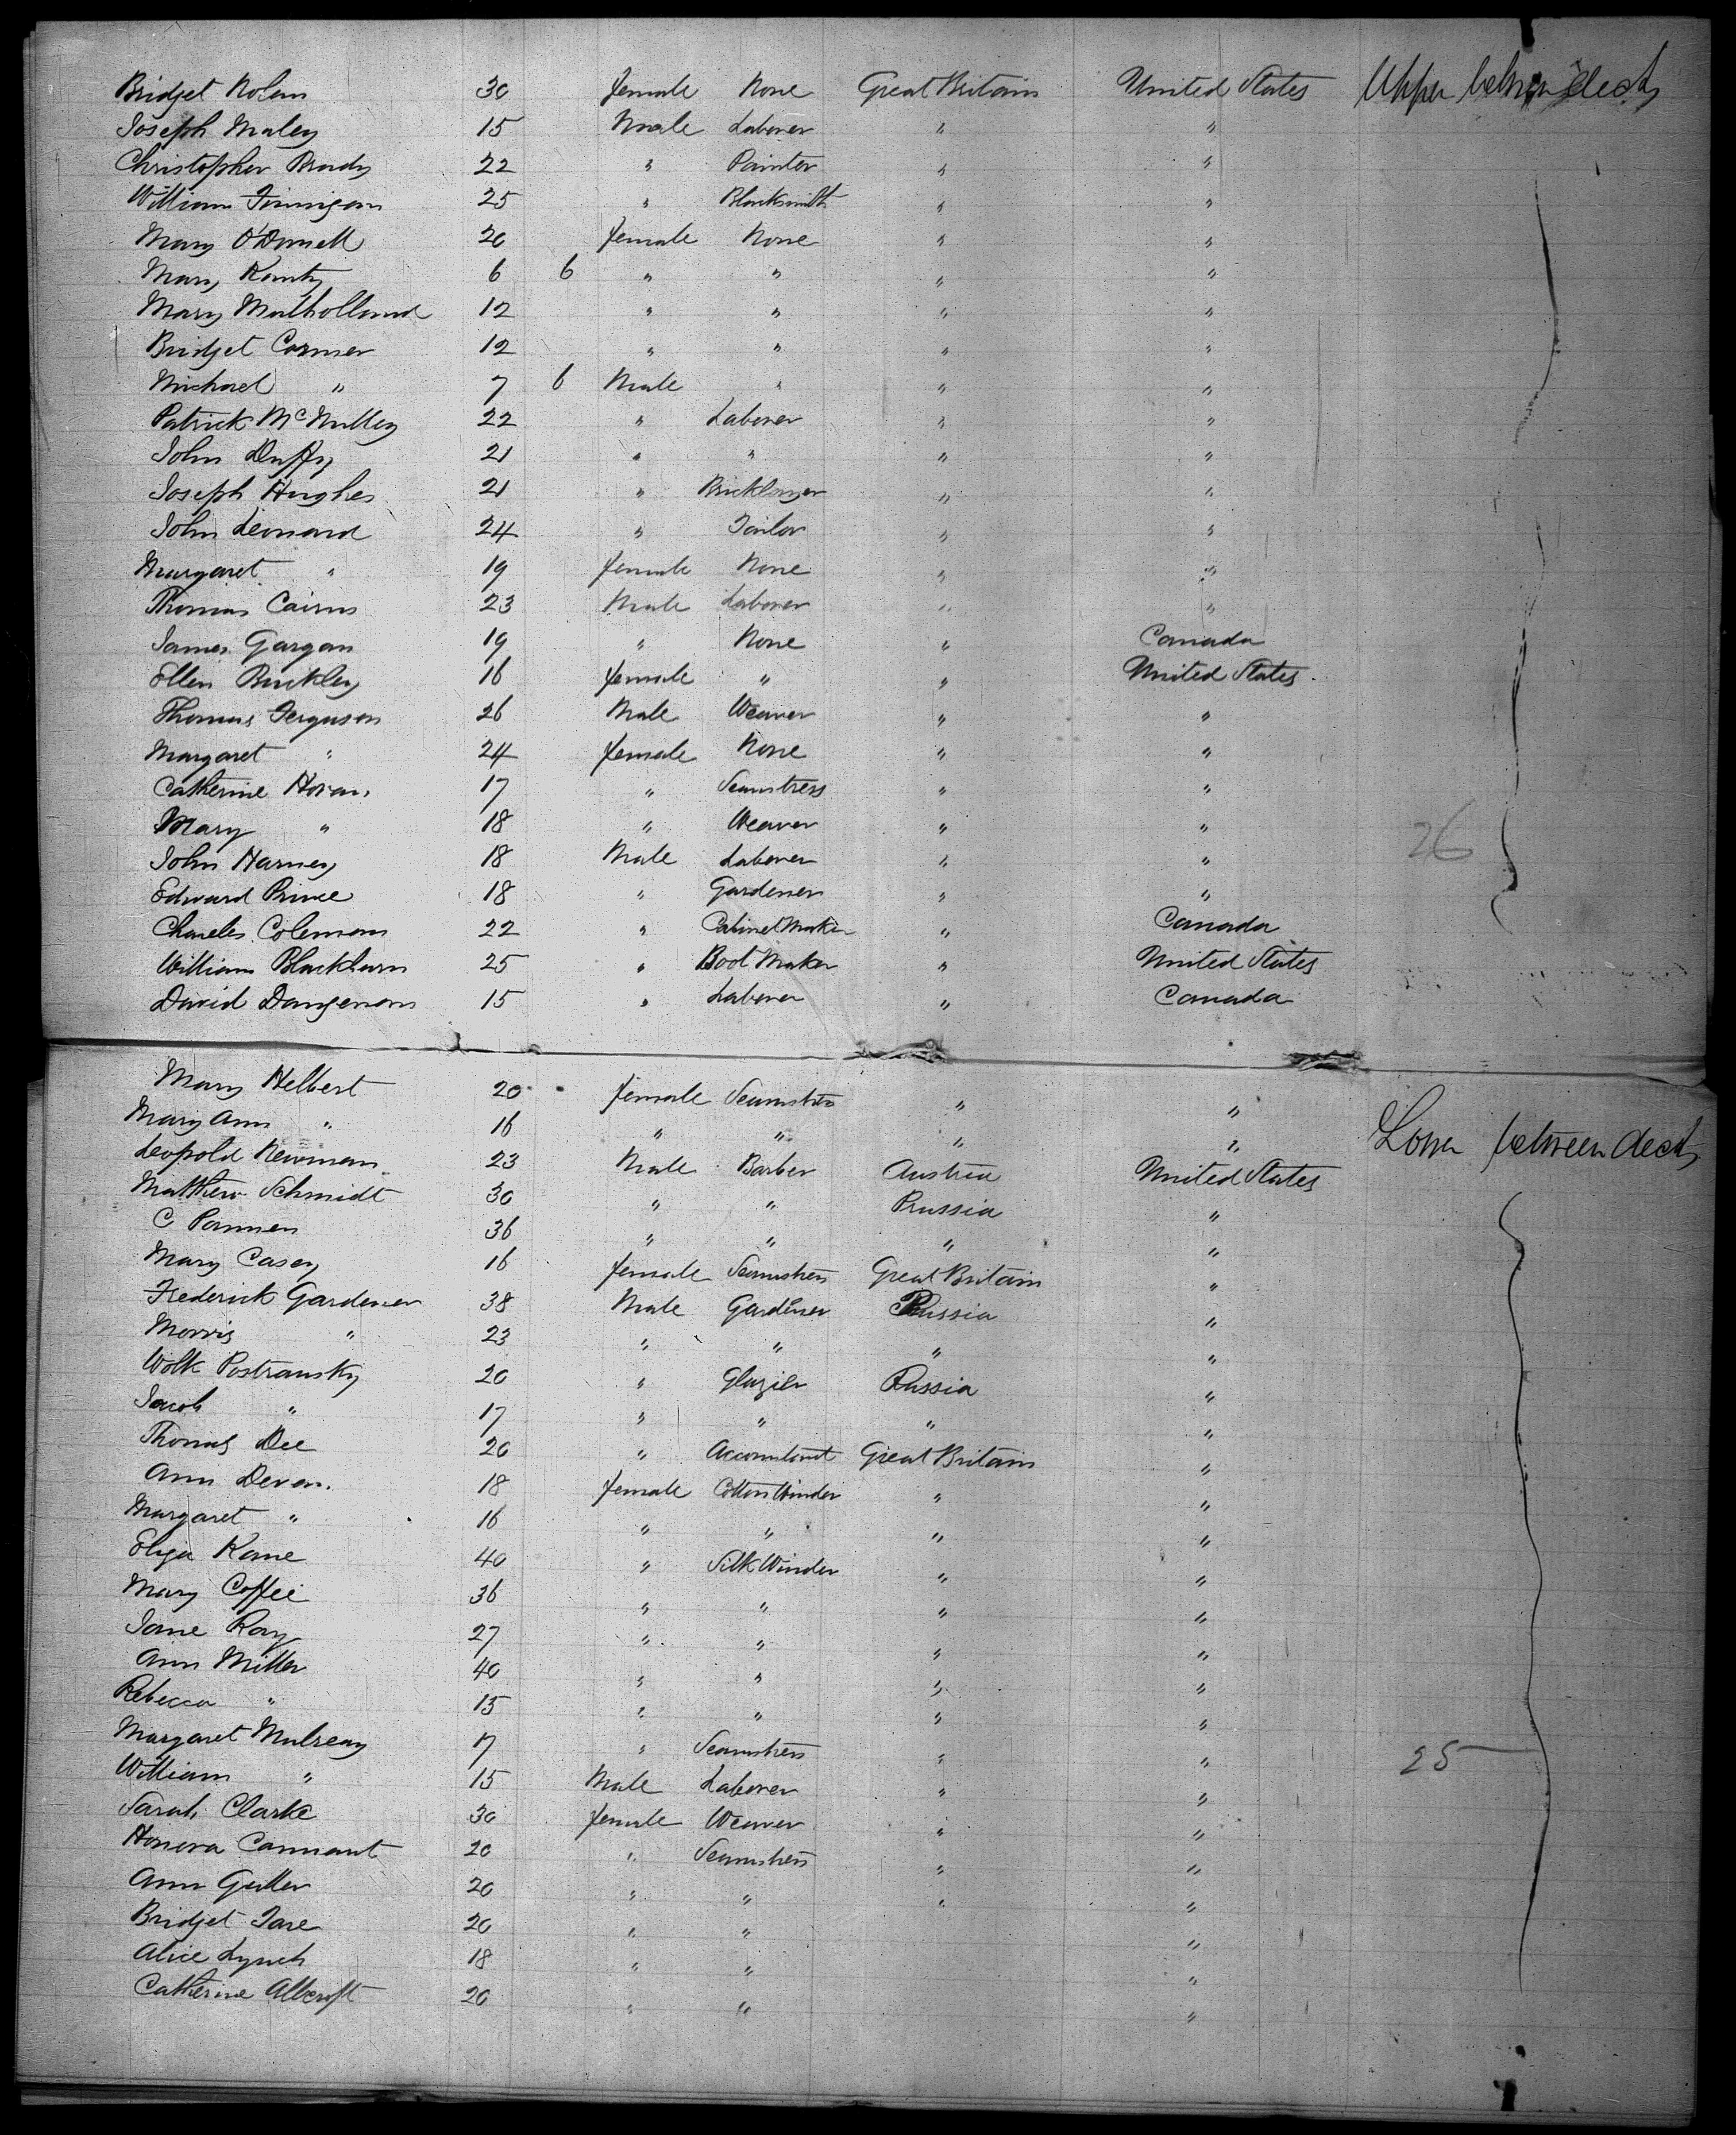 Bridget Nolan 30 female None Great Britain United States Upper between decks
Joseph Maley 15 Male Laborer " "
Christopher Brady 22 " Painter " "
William Finnigan 25 " Blacksmith " "
Mary O'Donnell 20 female None " "
Mary 6 6 " " " "
Mary Mulholland 12 " " " "
Bridget Cormer 12 " " " "
Michael " 7 6 Male " " "
Patrick McNulley 22 " Laborer " "
John Duffy 21 " " " "
Joseph Hughes 21 " Bricklayer " "
John Leonard 24 " Tailor " "
Margaret " 19 female None " "
Thomas Cairns 23 Male Laborer " "
James Gargan 19 " None " Canada
Ellen Buckley 16 female " " United States
Thomas Ferguson 26 Male Weaver " "
Margaret " 24 female None " "
Catherine Horan 17 " Seamstress " "
Mary " 18 " Weaver " "
John Harney 18 Male Laborer " " 26
Edward Prince 18 " Gardener " "
Charles Coleman 22 " Cabinet Maker " Canada
William Blackburn 25 " Boot Maker " United States
David 15 " Laborer " Canada
Mary Helbert 20 female Seamstress " "
Mary Ann " 16 " " " " Lower between decks
Leopold Newman 23 Male Barber Austria United States
Matthew Schmidt 30 " " Prussia "
C Pannen 36 " " " "
Mary Casey 16 female Seamstress Great Britain "
Frederick Gardener 38 Male Gardener Russia "
Morris " 23 " " " "
Wolk Postransky 20 " Glazier Russia "
Jacob " 17 " " " "
Thomas Dee 20 " Accountant Great Britain "
Ann Deven 18 female Cotton Winder " "
Margaret " 16 " " " "
Eliza Kane 40 " Silk Winder " "
Mary Coffee 36 " " " "
Jane Ray 27 " " " "
Ann Miller 40 " " " "
Rebecca " 15 " " " "
Margaret Mulreay 17 " Seamstress " " 25
William " 15 Male Laborer " "
Sarah Clarke 30 female Weaver " "
Honora Cannant 20 " Seamstress " "
Ann 20 " " " "
Bridget 20 " " "
Alice Lynch 18 " " "
Catherine Allcroft 20 " " "